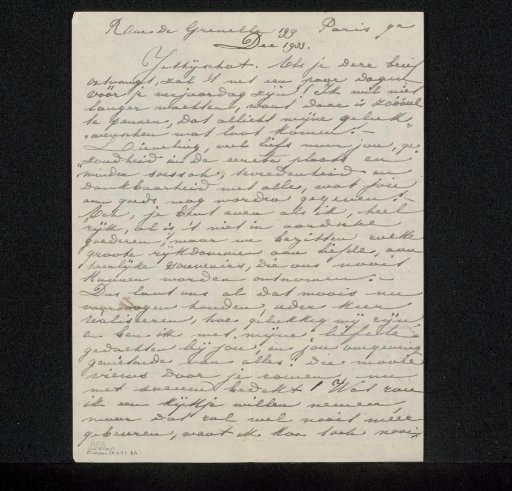 Rue de Grenelle 199 Paris 7e
Dec 1933.
Jettyschat. Als je deze brief
ontvangt, zal 't net een paar dagen
vóór je verjaardag zijn! Ik wil niet
langer wachten, want daar is zóóveel
te pennen, dat allicht mijne geluk-
wenschen wat laat komen! -
Lieveling, veel liefs voor jou, ge-
zondheid in de eerste plaats en
minder, tevredenheid en
dankbaarheid met alles, wat jou
aan goeds mag worden gegeven! -
je bent even als ik, heel
rijk, al is 't niet in aardsche
goederen, maar we bezitten, zulke
groote rijkdommen aan liefde, aan
heerlijke souvenirs, die ons nooit
kunnen worden ontnomen! -
Dus laat ons al dat moois nu
voor oogen houden, ieder keer
realiseeren, hoe gelukkig wij zijn
en ben ik met mijne liefste
gedachten bij jou, in jou omgeving
genietende van alles. Die mooie
views door je ramen, nu
met sneeuw bedekt! Wat zou
ik een kijkje willen nemen,
maar dat zal wel nooit méér
gebeuren, want ik kan toch nooit